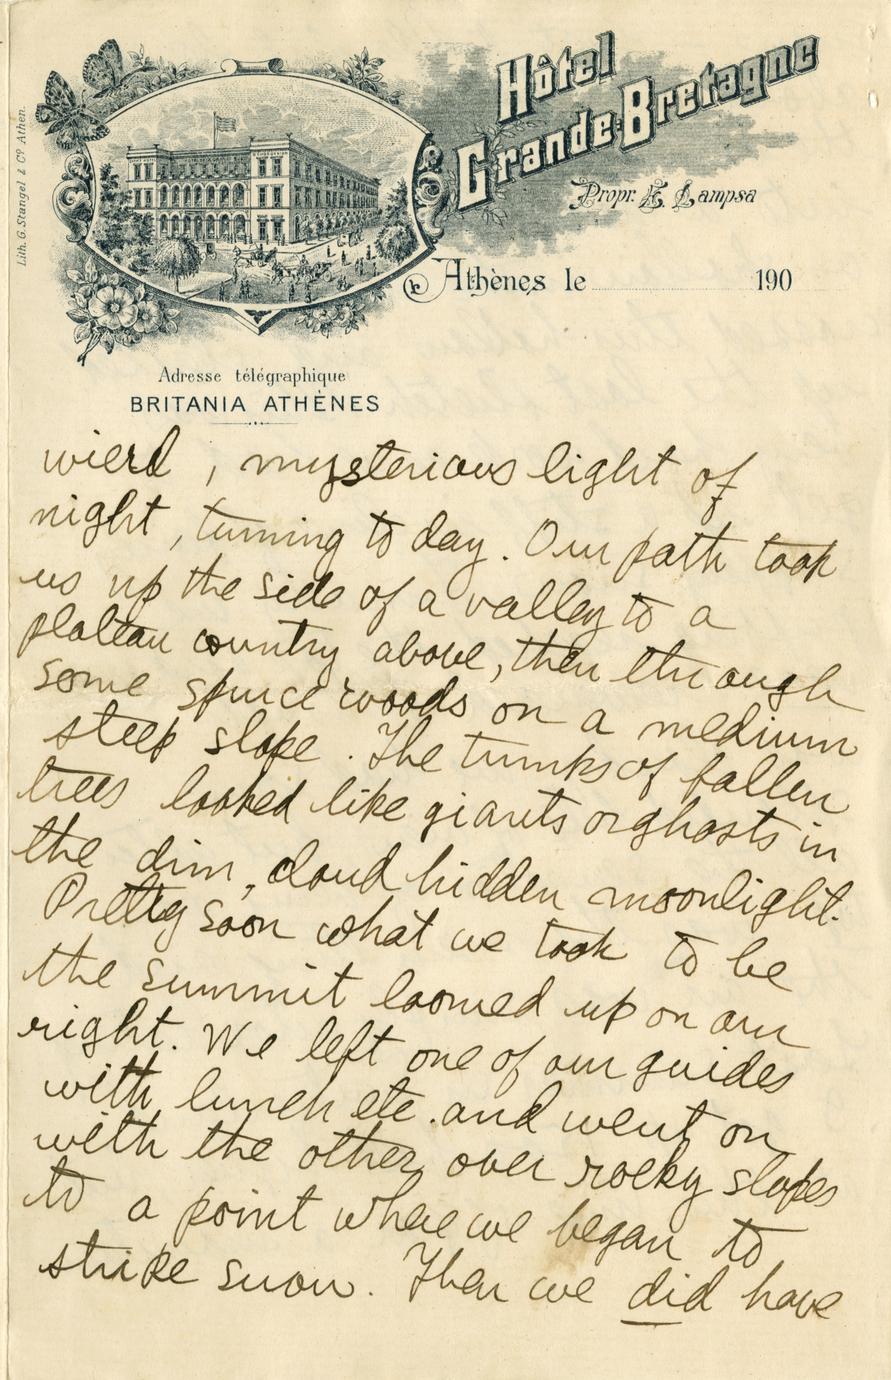 Lith. G. Stangel & Cº. Athen.
Hôtel
Grande-Bretagne
Propr. E. Lampsa
Athènes le 190
Adresse télégraphique
BRITANIA ATHÈNES
wierd, mysterious light of
night, turning to day. Our path took
us up the side of a valley to a
plateau country above, then through
some spruce woods on a medium
steep slope. The trunks of fallen
trees looked like giants or ghosts in
the dim, cloud hidden moonlight.
Pretty soon what we took to be
the summit loomed up on our
right. We left one of our guides
with lunch etc. and went on
with the other over rocky slopes
to a point where we began to
strike snow. Then we did have